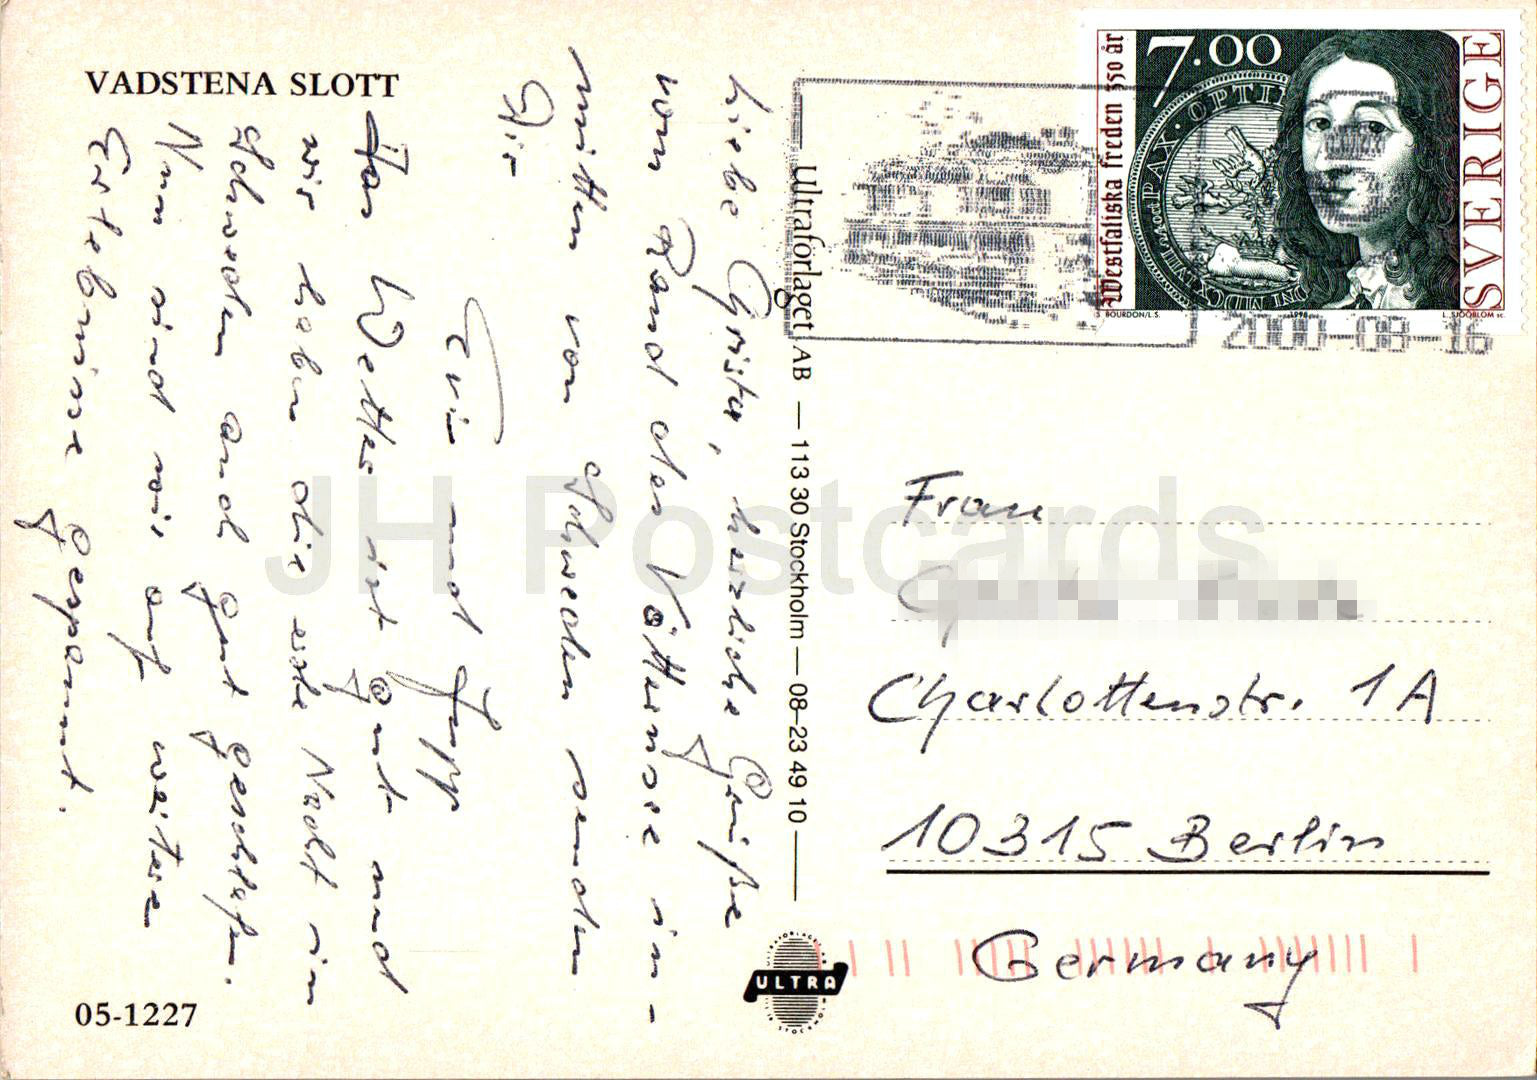 VADSTENA SLOTT
Liebe Christa, herzliche Grüße
vom Rand des Vätternsee in-
mitten von Schweden senden
Dir
Evi und Jupp
Das Wetter ist gut und
wir haben die erste Nacht in
Schweden auch gut geschlafen.
Nun sind wir auf weitere
Erlebnisse gespannt.
05-1227
Ultraförlaget AB — 113 30 Stockholm — 08-23 49 10
ULTRA
7.00
SVERIGE
Westfaliska freden 350 år
PAX · OPTIM
S. BOURDON/L.S.
1998
L. SJÖÖBLOM sc.
2000-08-16
Frau
Charlottenstr. 1A
10315 Berlin
Germany
JH Postcards